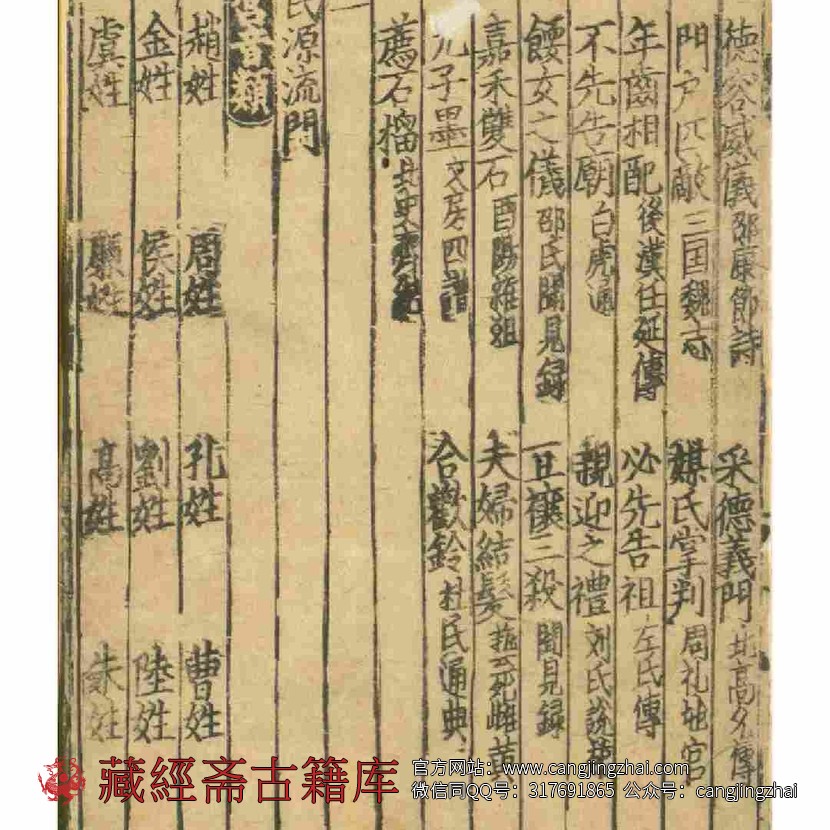 德容威儀 邵康節詩 采德義門 北高允傳
門户匹敵 三国魏志 媒氏掌判 周礼地官
年齒相配 後漢任延傳 必先告祖 左氏傳
不先告廟 白虎通 親迎之禮 刘氏說
餪女之儀 邵氏聞見録 且禳三殺 聞見録
嘉禾雙石 酉陽雜俎 夫婦結髮
九子墨 文房四譜 合歡鈴 杜氏通典
薦石榴 北史
氏源流門
類
趙姓 周姓 孔姓 曹姓
金姓 侯姓 劉姓 陸姓
虞姓 姓 高姓 朱姓
藏經斋古籍库
官方网站：www.cangjingzhai.com
微信同QQ号：317691865 公众号：cangjingzhai